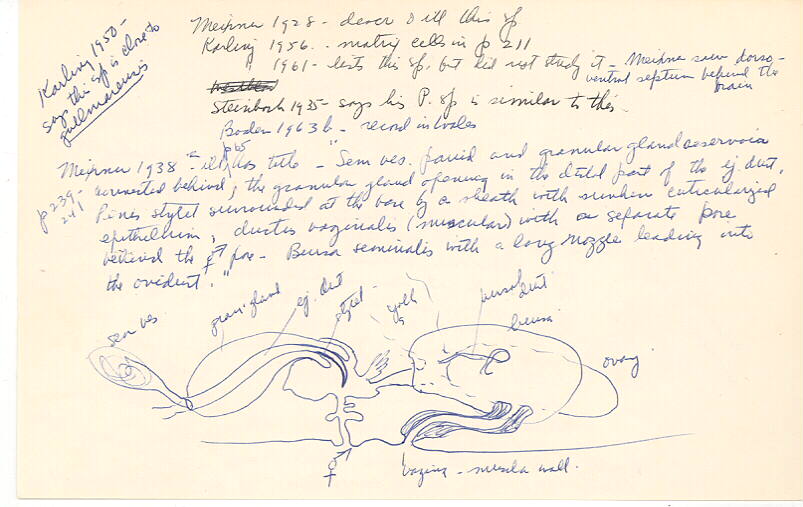 Karling 1950-
says this sp is close to
gullmarensis
Meixner 1928- descr & ill this sp
Karling 1956.. matrix cells in p 211
" 1961- lists this sp, but did not study it - Meixner saw dorso-
ventral septum behind the
brain
Steinböck 1935- says his P. sp is similar to this.
Boaden 1963b - record in Wales
p 65
Meixner 1938 - ill, has title - "Sem ves. paired and granular gland reservoir
p 239-
241
connected behind; the granular gland opening in the distal part of the ej. duct,
Penes stylet surrounded at the base by a sheath with sunken cuticularized
epithelium; ductus vaginalis (muscular) with a separate pore
behind the ⚥ pore - Bursa seminalis with a long nozzle leading into
the oviduct."
sem ves
gran. gland
ej. duct
stylet
yolk
bursal
duct
bursa
ovary
⚥
vagina - muscular wall.